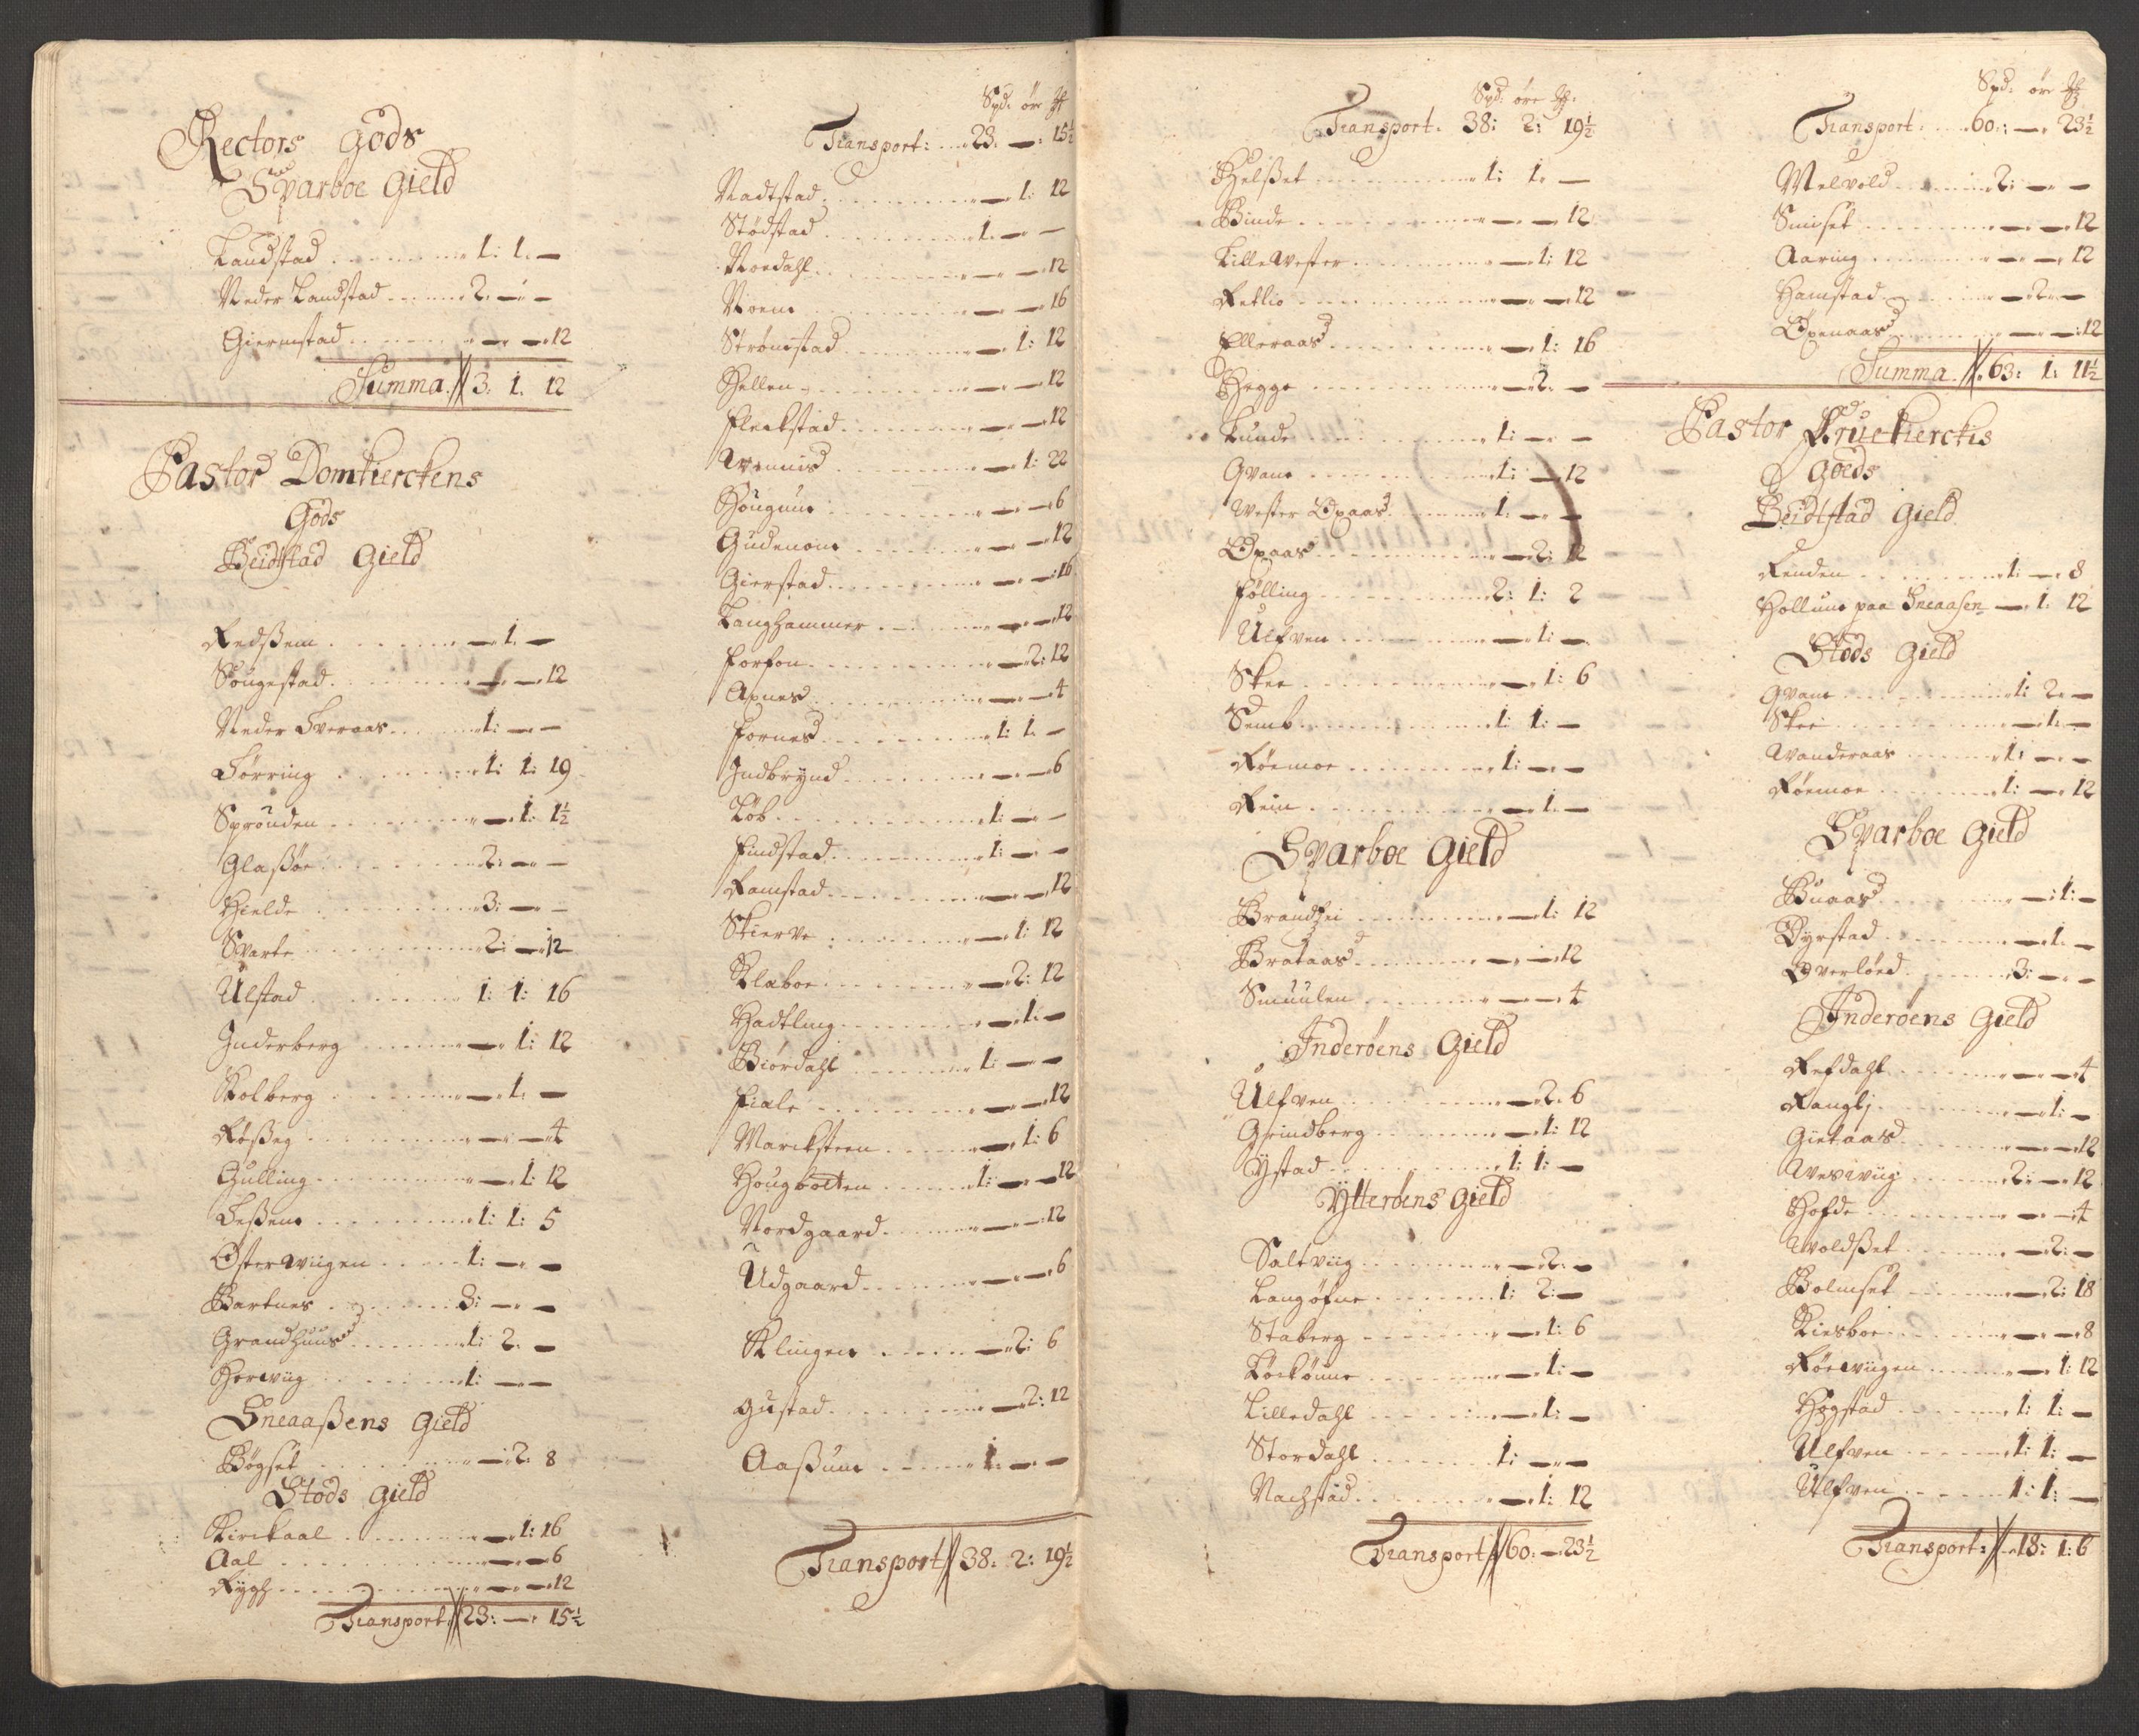 Rectors Gods
Sparboe Gield
Landstad . . . . . 1: 1. —
Neder Landstad . . . . 2. — —
Giermstad . . . . . — — 12
Summa // 3. 1. 12
Pastor Domkierckens
Gods
Beidstad Gield
Redßem . . . . — 1. —
Sougestad . . . . — — 12
Neder Tveraas . . . . 1: — —
Tørring . . . . 1: 1: 19
Sprouden . . . . — 1: 1½
Glaßøe . . . . 2: — —
Hielde . . . . 3: — —
Svarte . . . . 2: — 12
Ulstad . . . . 1: 1: 16
Inderberg . . . . — 1: 12
Kolberg . . . . — 1: —
Røßeg . . . . — — 4
Gulling . . . . — 1: 12
Leßem . . . . 1: 1: 5
Øster Wiigen . . . . 1: — —
Bartnes . . . . 3: — —
Grandhuus . . . . 1: 2. —
Horwiig . . . . 1: — —
Sneaaßens Gield
Bøgset . . . . — 2. 8
Stods Gield
Kirckaal . . . . — 1: 16
Aal . . . . — — 6
Rygh . . . . — — 12
Transport // 23: — 15½
Spd: ør ß
Transport: . . 23. — 15½
Nadtstad . . . . — 1: 12
Stødstad . . . . 1. — —
Noedahl . . . . — — 12
Noem . . . . — — 16
Strømstad . . . . — 1: 12
Hellem . . . . — — 12
Fleckstad . . . . — — 12
Avennis . . . . — 1: 22
Hougum . . . . — — 6
Gudenom . . . . — — 12
Gierstad . . . . — — 16
Langhammer . . . . — — 12
Forfon . . . . — 2: 12
Apnes . . . . — — 4
Fornes . . . . 1: 1. —
Indbrynd . . . . — — 6
Løb . . . . 1: — —
Findstad . . . . 1: — —
Ramstad . . . . — — 12
Skierve . . . . — 1: 12
Klæboe . . . . — 2: 12
Hadtling . . . . — 1: —
Biørdahl . . . . 1: — —
Fiale . . . . — — 12
Marcksteen . . . . — 1: 6
Hougbolten . . . . 1: — 12
Nordgaard . . . . — — 12
Udgaard . . . . — — 6
Klingen . . . . — 2: 6
Gustad . . . . — 2: 12
Aaßum . . . . 1. — —
Transport // 38: 2: 19½
Spd: øre ß.
Transport. 38: 2: 19½
Helßet . . . . 1: 1. —
Binde . . . . — — 12
Lille Wester . . . . — 1: 12
Retlio . . . . — — 12
Elleraas . . . . — 1: 16
Hegge . . . . — 2. —
Lunde . . . . 1: — —
Qvam . . . . 1: — 12
Wester Opaas . . . . 1. — —
Opaas . . . . — 2: 12
Følling . . . . 2: 1: 2
Ulfven . . . . — 1: —
Skee . . . . — 1: 6
Semb . . . . 1: 1: —
Røemoe . . . . 1: — —
Rein . . . . — 1. —
Sparboe Gield
Brandhei . . . . — 1: 12
Brataas . . . . — — 12
Smuulen . . . . — — 4
Inderøens Gield
Ulfven . . . . — 2. 6
Grindberg . . . . — 1: 12
Ystad . . . . 1: 1: —
Ytterøens Gield
Saltviig . . . . — 2. —
Langøfne . . . . 1: 2: —
Staberg . . . . — 1: 6
Løckønne . . . . — 1: —
Lilledahl . . . . — 1: —
Stordahl . . . . 1: — —
Nachstad . . . . — 1: 12
Transport // 60: — 23½
Spd: ør ß
Transport: . . 60: — 23½
Melvold . . . . 2: — —
Smiset . . . . — — 12
Aaring . . . . — — 12
Hamstad . . . . — 2. —
Openaas . . . . — — 12
Summa // 63: 1: 11½
Pastor Fruekierckis
Goeds
Beidtstad Gield
Renden . . . . 1: — 8
Hollum paa Sneaasen — 1. 12
Stods Gield
Qvam . . . . 1: 2. —
Skei . . . . — 1. —
Wanderaas . . . . 1: — —
Røemoe . . . . 1: — 12
Sparboe Gield
Buaas . . . . — 1: —
Dyrstad . . . . — 1. —
Overløed . . . . 3: — —
Inderøens Gield
Refdahl . . . . — — 4
Ranglj . . . . — 1: —
Gietaas . . . . — — 12
Wesiviig . . . . 2: — 12
Hofde . . . . — — 4
Woldßet . . . . — 2: —
Bolmset . . . . — 2: 18
Kiesboe . . . . — — 8
Røewiigen . . . . — 1: 12
Hogstad . . . . 1: 1: —
Ulfven . . . . 1: 1: —
Ulfven . . . . 1: 1: —
Transport: // 18: 1: 6